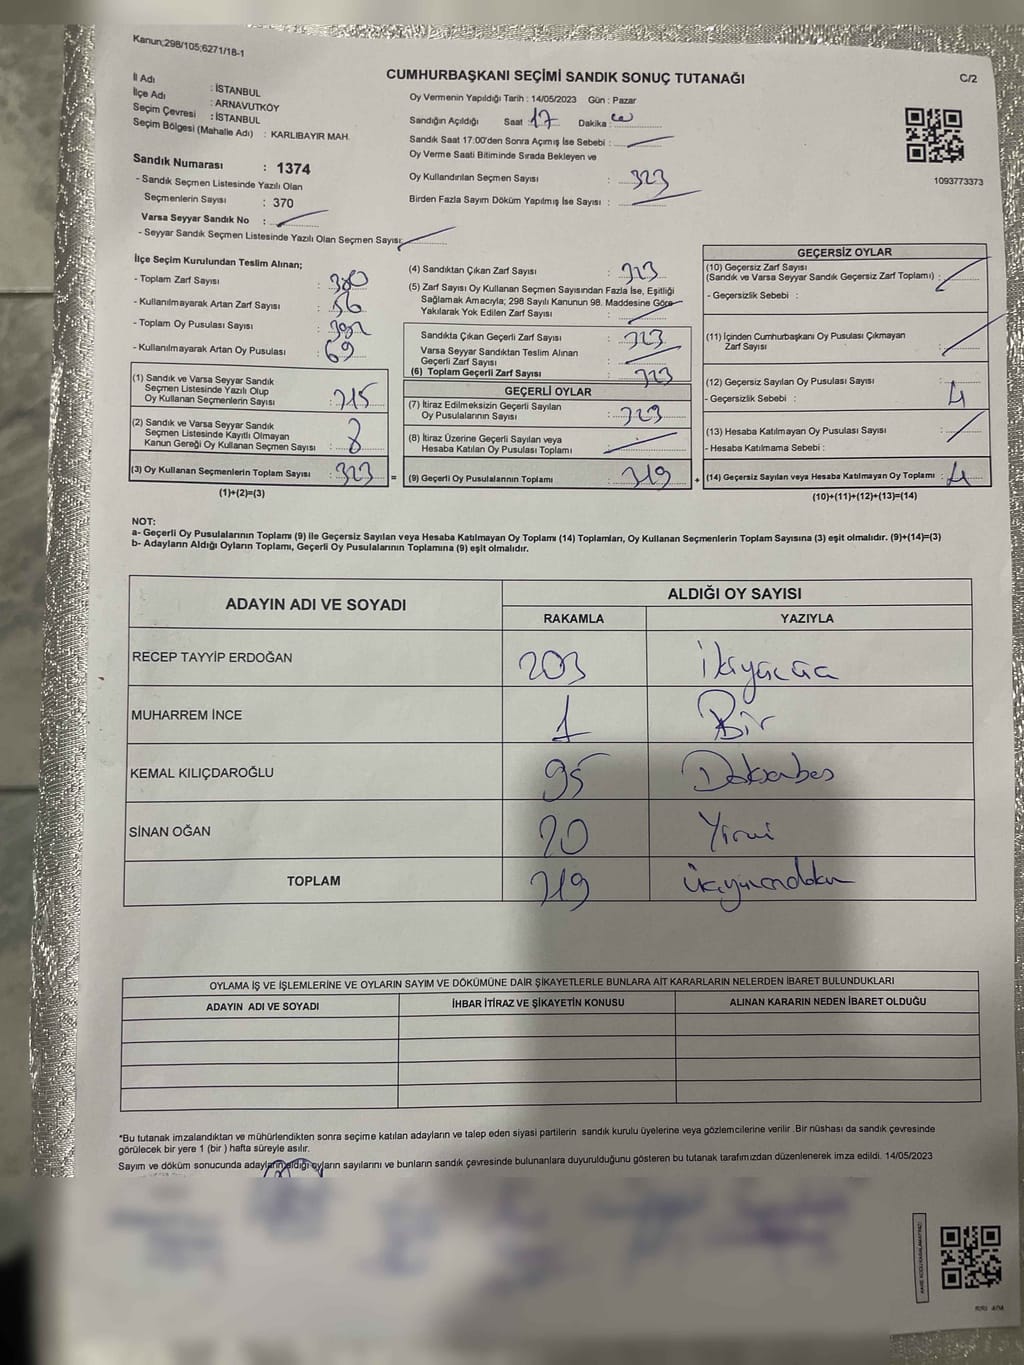 Kanun;298/105;6271/18-1
CUMHURBAŞKANI SEÇİMİ SANDIK SONUÇ TUTANAĞI
C/2
İl Adı : İSTANBUL
İlçe Adı : ARNAVUTKÖY
Seçim Çevresi : İSTANBUL
Seçim Bölgesi (Mahalle Adı) : KARLIBAYIR MAH.
Sandık Numarası : 1374
- Sandık Seçmen Listesinde Yazılı Olan
Seçmenlerin Sayısı : 370
Varsa Seyyar Sandık No :
- Seyyar Sandık Seçmen Listesinde Yazılı Olan Seçmen Sayısı:
Oy Vermenin Yapıldığı Tarih : 14/05/2023 Gün : Pazar
Sandığın Açıldığı Saat 17 Dakika :
Sandık Saat 17:00'den Sonra Açımış İse Sebebi :
Oy Verme Saati Bitiminde Sırada Bekleyen ve
Oy Kullandırılan Seçmen Sayısı : 323
Birden Fazla Sayım Döküm Yapılmış İse Sayısı :
1093773373
İlçe Seçim Kurulundan Teslim Alınan;
- Toplam Zarf Sayısı : 380
- Kullanılmayarak Artan Zarf Sayısı : 56
- Toplam Oy Pusulası Sayısı : 392
- Kullanılmayarak Artan Oy Pusulası : 69
(1) Sandık ve Varsa Seyyar Sandık
Seçmen Listesinde Yazılı Olup
Oy Kullanan Seçmenlerin Sayısı : 315
(2) Sandık ve Varsa Seyyar Sandık
Seçmen Listesinde Kayıtlı Olmayan
Kanun Gereği Oy Kullanan Seçmen Sayısı : 8
(3) Oy Kullanan Seçmenlerin Toplam Sayısı : 323 =
(1)+(2)=(3)
(4) Sandıktan Çıkan Zarf Sayısı : 323
(5) Zarf Sayısı Oy Kullanan Seçmen Sayısından Fazla İse, Eşitliği
Sağlamak Amacıyla; 298 Sayılı Kanunun 98. Maddesine Göre
Yakılarak Yok Edilen Zarf Sayısı :
Sandıkta Çıkan Geçerli Zarf Sayısı : 323
Varsa Seyyar Sandıktan Teslim Alınan
Geçerli Zarf Sayısı :
(6) Toplam Geçerli Zarf Sayısı : 323
GEÇERLİ OYLAR
(7) İtiraz Edilmeksizin Geçerli Sayılan
Oy Pusulalarının Sayısı : 323
(8) İtiraz Üzerine Geçerli Sayılan veya
Hesaba Katılan Oy Pusulası Toplamı :
(9) Geçerli Oy Pusulalarının Toplamı : 319 +
GEÇERSİZ OYLAR
(10) Geçersiz Zarf Sayısı
(Sandık ve Varsa Seyyar Sandık Geçersiz Zarf Toplamı) :
- Geçersizlik Sebebi :
(11) İçinden Cumhurbaşkanı Oy Pusulası Çıkmayan
Zarf Sayısı :
(12) Geçersiz Sayılan Oy Pusulası Sayısı : 4
- Geçersizlik Sebebi :
(13) Hesaba Katılmayan Oy Pusulası Sayısı :
- Hesaba Katılmama Sebebi :
(14) Geçersiz Sayılan veya Hesaba Katılmayan Oy Toplamı : 4
(10)+(11)+(12)+(13)=(14)
NOT:
a- Geçerli Oy Pusulalarının Toplamı (9) ile Geçersiz Sayılan veya Hesaba Katılmayan Oy Toplamı (14) Toplamları, Oy Kullanan Seçmenlerin Toplam Sayısına (3) eşit olmalıdır. (9)+(14)=(3)
b- Adayların Aldığı Oyların Toplamı, Geçerli Oy Pusulalarının Toplamına (9) eşit olmalıdır.
ADAYIN ADI VE SOYADI ALDIĞI OY SAYISI
RAKAMLA YAZIYLA
RECEP TAYYİP ERDOĞAN 203
MUHARREM İNCE 1 Bir
KEMAL KILIÇDAROĞLU 95 Doksanbeş
SİNAN OĞAN 20 Yirmi
TOPLAM 319
OYLAMA İŞ VE İŞLEMLERİNE VE OYLARIN SAYIM VE DÖKÜMÜNE DAİR ŞİKAYETLERLE BUNLARA AİT KARARLARIN NELERDEN İBARET BULUNDUKLARI
ADAYIN ADI VE SOYADI İHBAR İTİRAZ VE ŞİKAYETİN KONUSU ALINAN KARARIN NEDEN İBARET OLDUĞU
*Bu tutanak imzalandıktan ve mühürlendikten sonra seçime katılan adayların ve talep eden siyasi partilerin sandık kurulu üyelerine veya gözlemcilerine verilir .Bir nüshası da sandık çevresinde
görülecek bir yere 1 (bir ) hafta süreyle asılır.
Sayım ve döküm sonucunda adayların aldığı oyların sayılarını ve bunların sandık çevresinde bulunanlara duyurulduğunu gösteren bu tutanak tarafımızdan düzenlenerek imza edildi. 14/05/2023